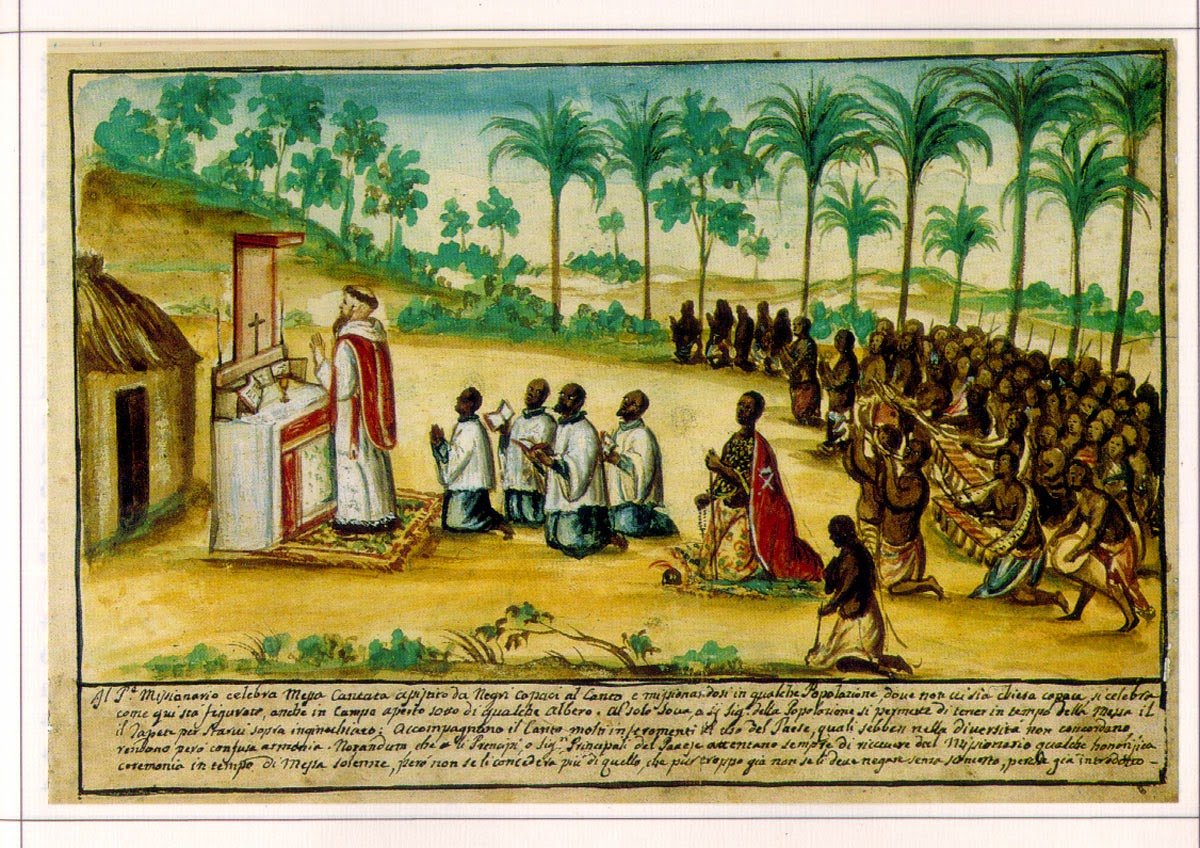 Il P.e Missionario celebra Messa Cantata assistito da Negri capaci al Canto, e missionandosi in qualche Popolazione doue non ui sia chiesa capace, si celebra
come qui sta figurato, anche in Campo aperto sotto di qualche Albero. Al solo Soua, o Sig.e della Popolazione si permette di tener in tempo della Messa il
il Tapeto per starui sopra inginochiato; Accompagnano il Canto molti instromenti al uso del Paese, quali sebben nella Diuersità non concordano,
rendono però confusa armonia. Notandum, che li Prencipi, o Sig.ri Principali del Paese attentano sempre di riceuere dal Missionario qualche honorifica
ceremonia in tempo di Messa solenne, però non se li concederà più di quello, che pur troppo già non se li deue negare senza sconcerto, perche già introdotto